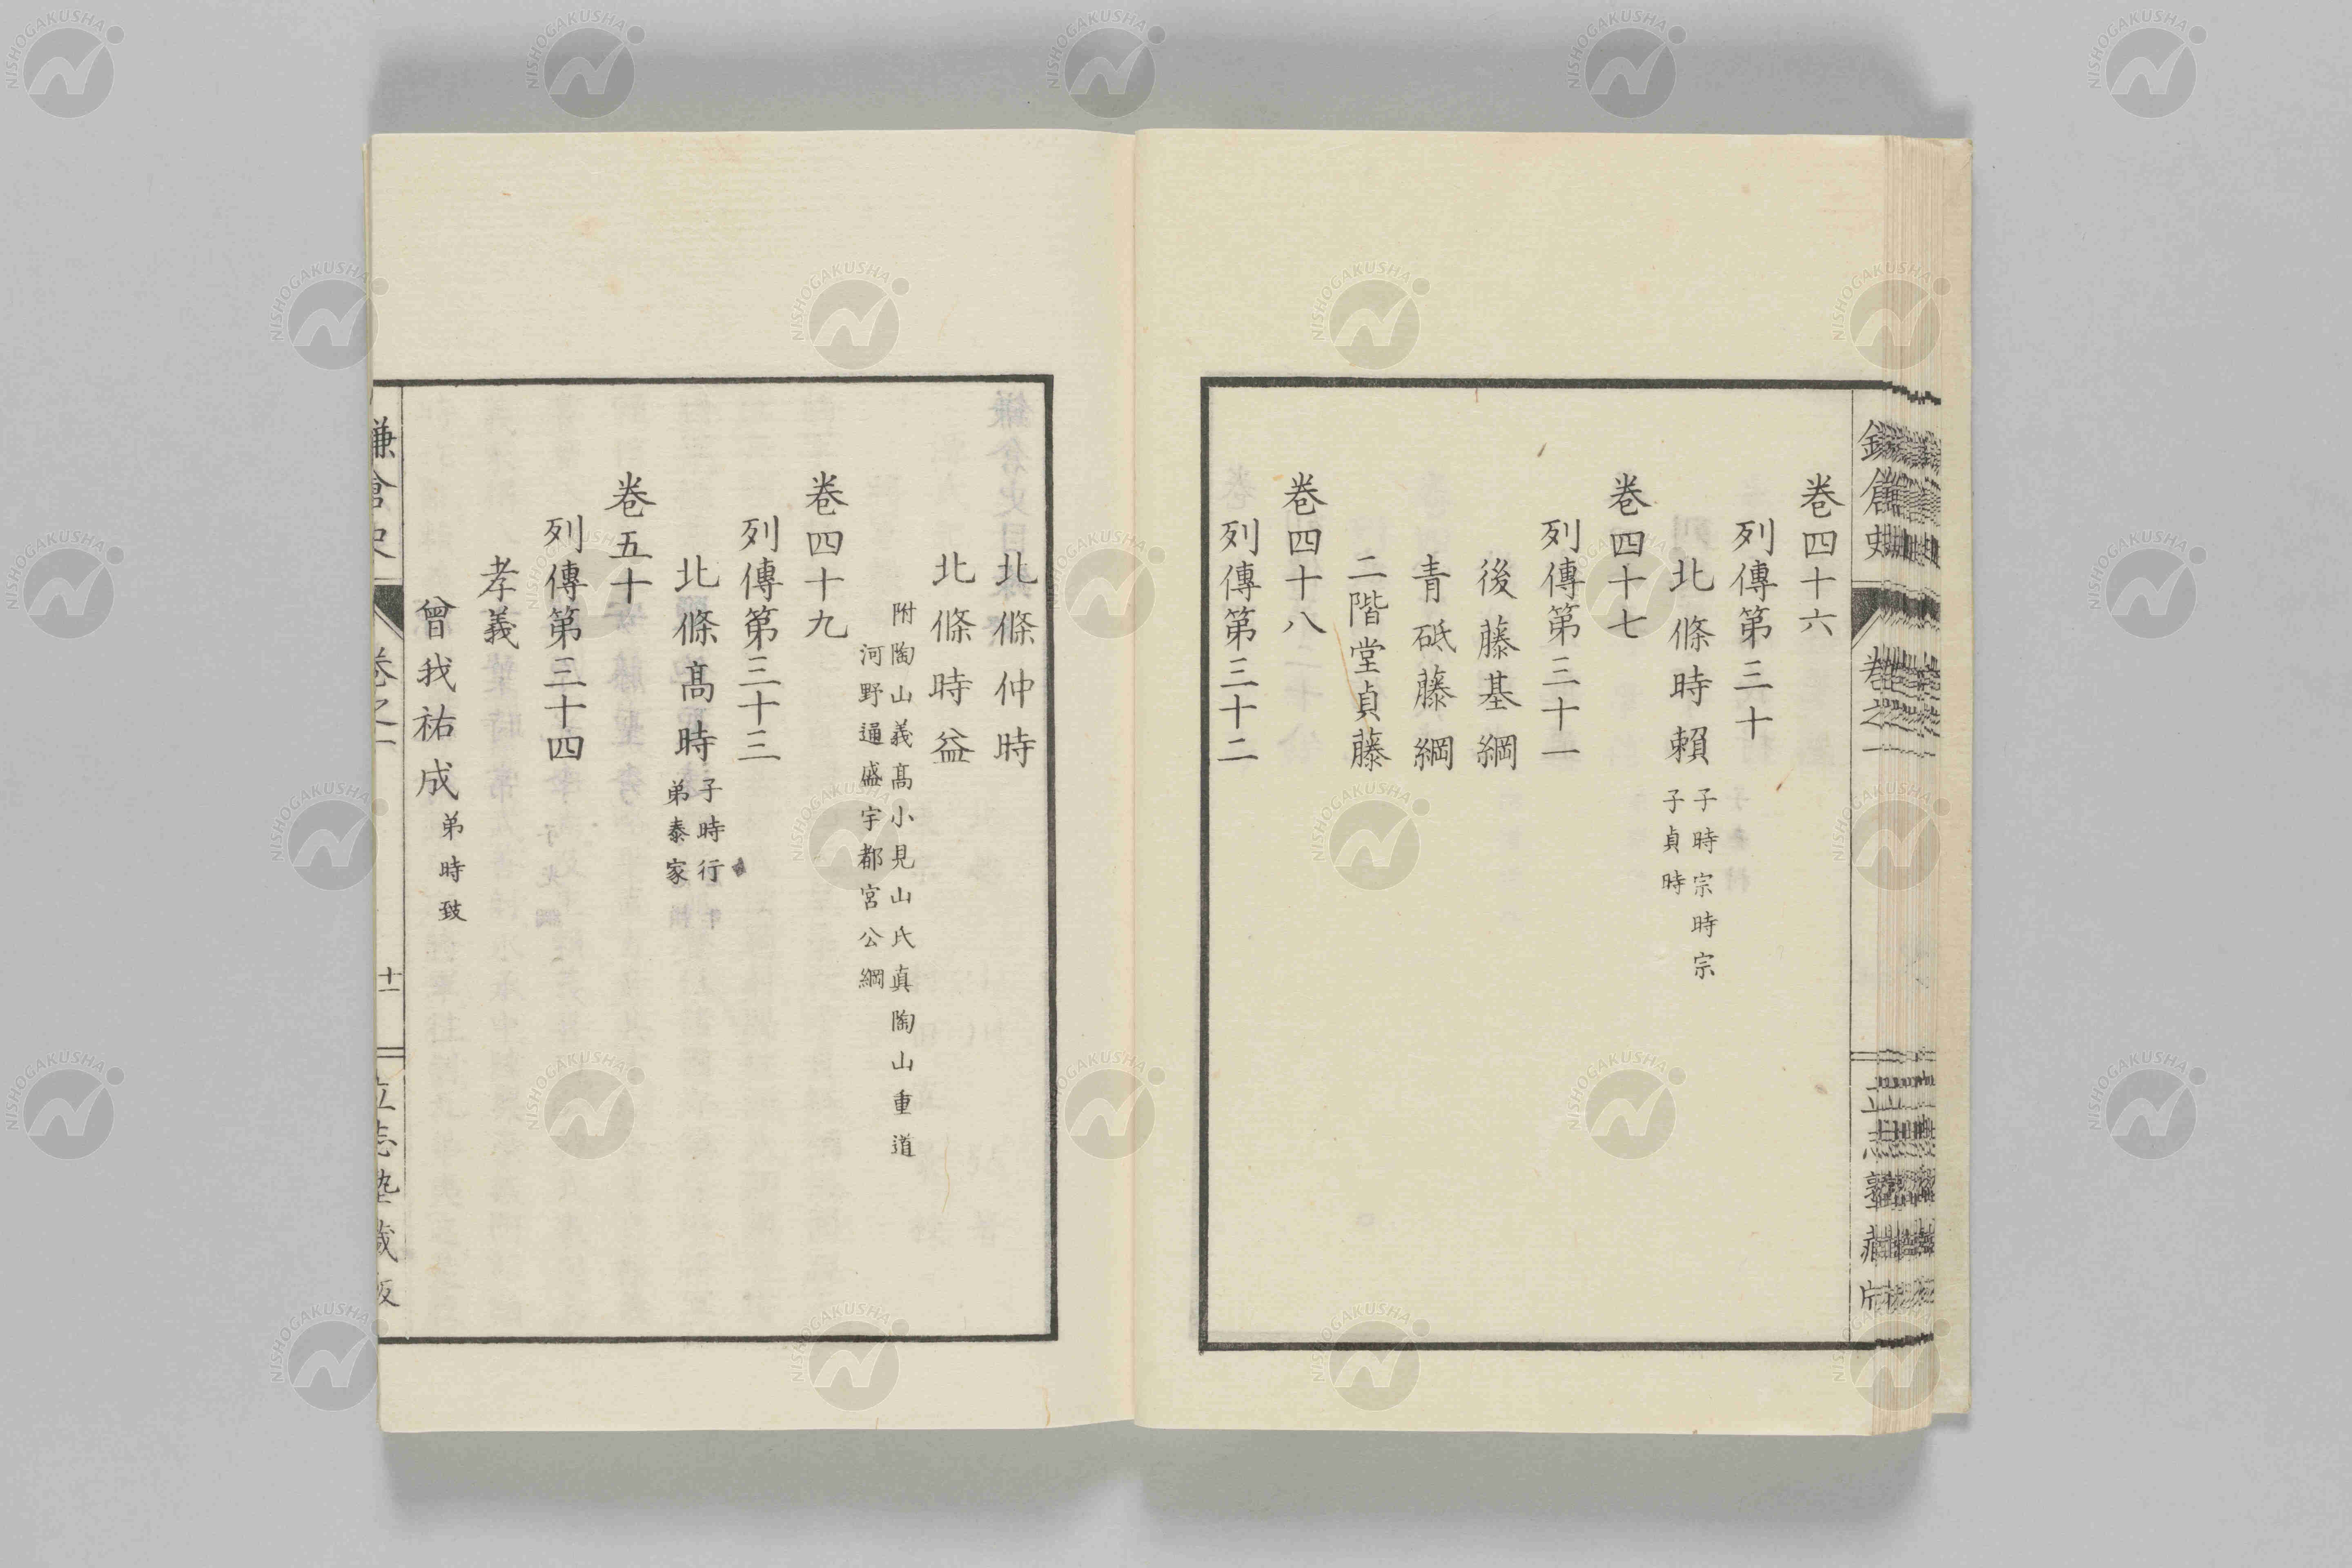 卷四十六
列傳第三十
北條時賴
子時宗時宗
子貞時
卷四十七
列傳第三十一
後藤基綱
青砥藤綱
二階堂貞藤
卷四十八
列傳第三十二
北條仲時
北條時益
附陶山義髙小見山氏眞陶山重道
河野通盛宇都宮公綱
卷四十九
列傳第三十三
北條髙時
子時行
弟泰家
卷五十
列傳第三十四
孝義
曾我祐成
弟時致
鎌倉史
卷之一
十一
立志塾藏版
NISHOGAKUSHA